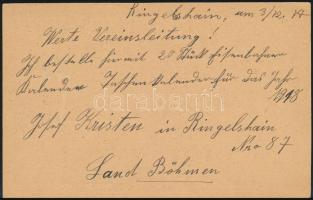 Ringelshain, am 3/12. 17
Werte Vereinsleitung!
Ich bestelle hiermit 20 Stück Eisenbahner
Kalender Taschenkalender für das Jahr
1918
Josef Kristen in Ringelshain
Nro 87
Land Böhmen
darabanth